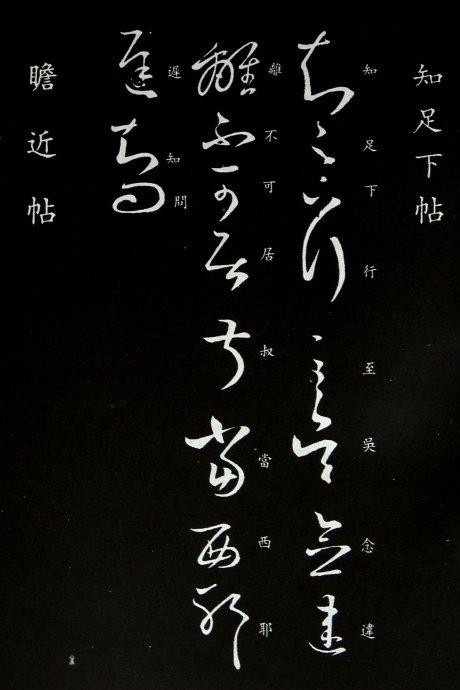 知足下帖
知足下行至吳念違
離不可居叔當西耶
遲知問
瞻近帖